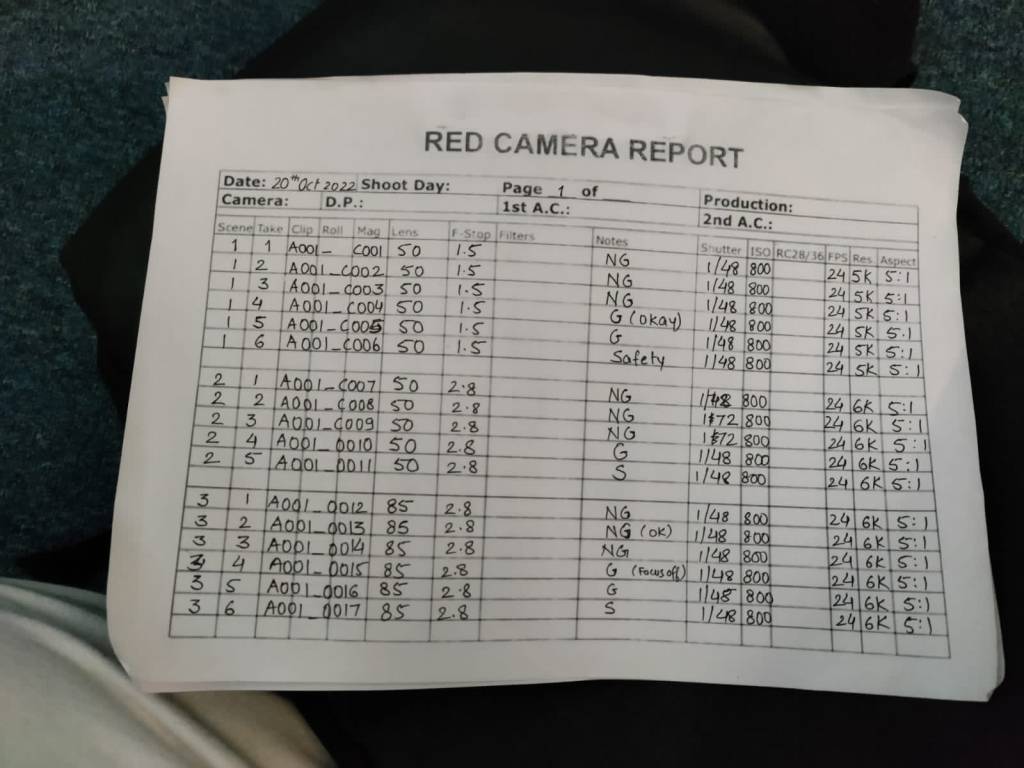 RED CAMERA REPORT
Date: 20th Oct 2022 Shoot Day: Page 1 of ___ Production:
Camera: D.P.: 1st A.C.: 2nd A.C.:
Scene Take Clip Roll Mag Lens F-Stop Filters Notes Shutter ISO RC28/36 FPS Res Aspect
1 1 A001_ C001 50 1.5 NG 1/48 800 24 5K 5:1
1 2 A001_C002 50 1.5 NG 1/48 800 24 5K 5:1
1 3 A001_C003 50 1.5 NG 1/48 800 24 5K 5:1
1 4 A001_C004 50 1.5 G (okay) 1/48 800 24 5K 5:1
1 5 A001_C005 50 1.5 G 1/48 800 24 5K 5:1
1 6 A001_C006 50 1.5 Safety 1/48 800 24 5K 5:1
2 1 A001_C007 50 2.8 NG 1/48 800 24 6K 5:1
2 2 A001_C008 50 2.8 NG 1/72 800 24 6K 5:1
2 3 A001_C009 50 2.8 NG 1/72 800 24 6K 5:1
2 4 A001_0010 50 2.8 G 1/48 800 24 6K 5:1
2 5 A001_0011 50 2.8 S 1/48 800 24 6K 5:1
3 1 A001_0012 85 2.8 NG 1/48 800 24 6K 5:1
3 2 A001_0013 85 2.8 NG (OK) 1/48 800 24 6K 5:1
3 3 A001_0014 85 2.8 NG 1/48 800 24 6K 5:1
3 4 A001_0015 85 2.8 G (Focus off) 1/48 800 24 6K 5:1
3 5 A001_0016 85 2.8 G 1/48 800 24 6K 5:1
3 6 A001_0017 85 2.8 S 1/48 800 24 6K 5:1